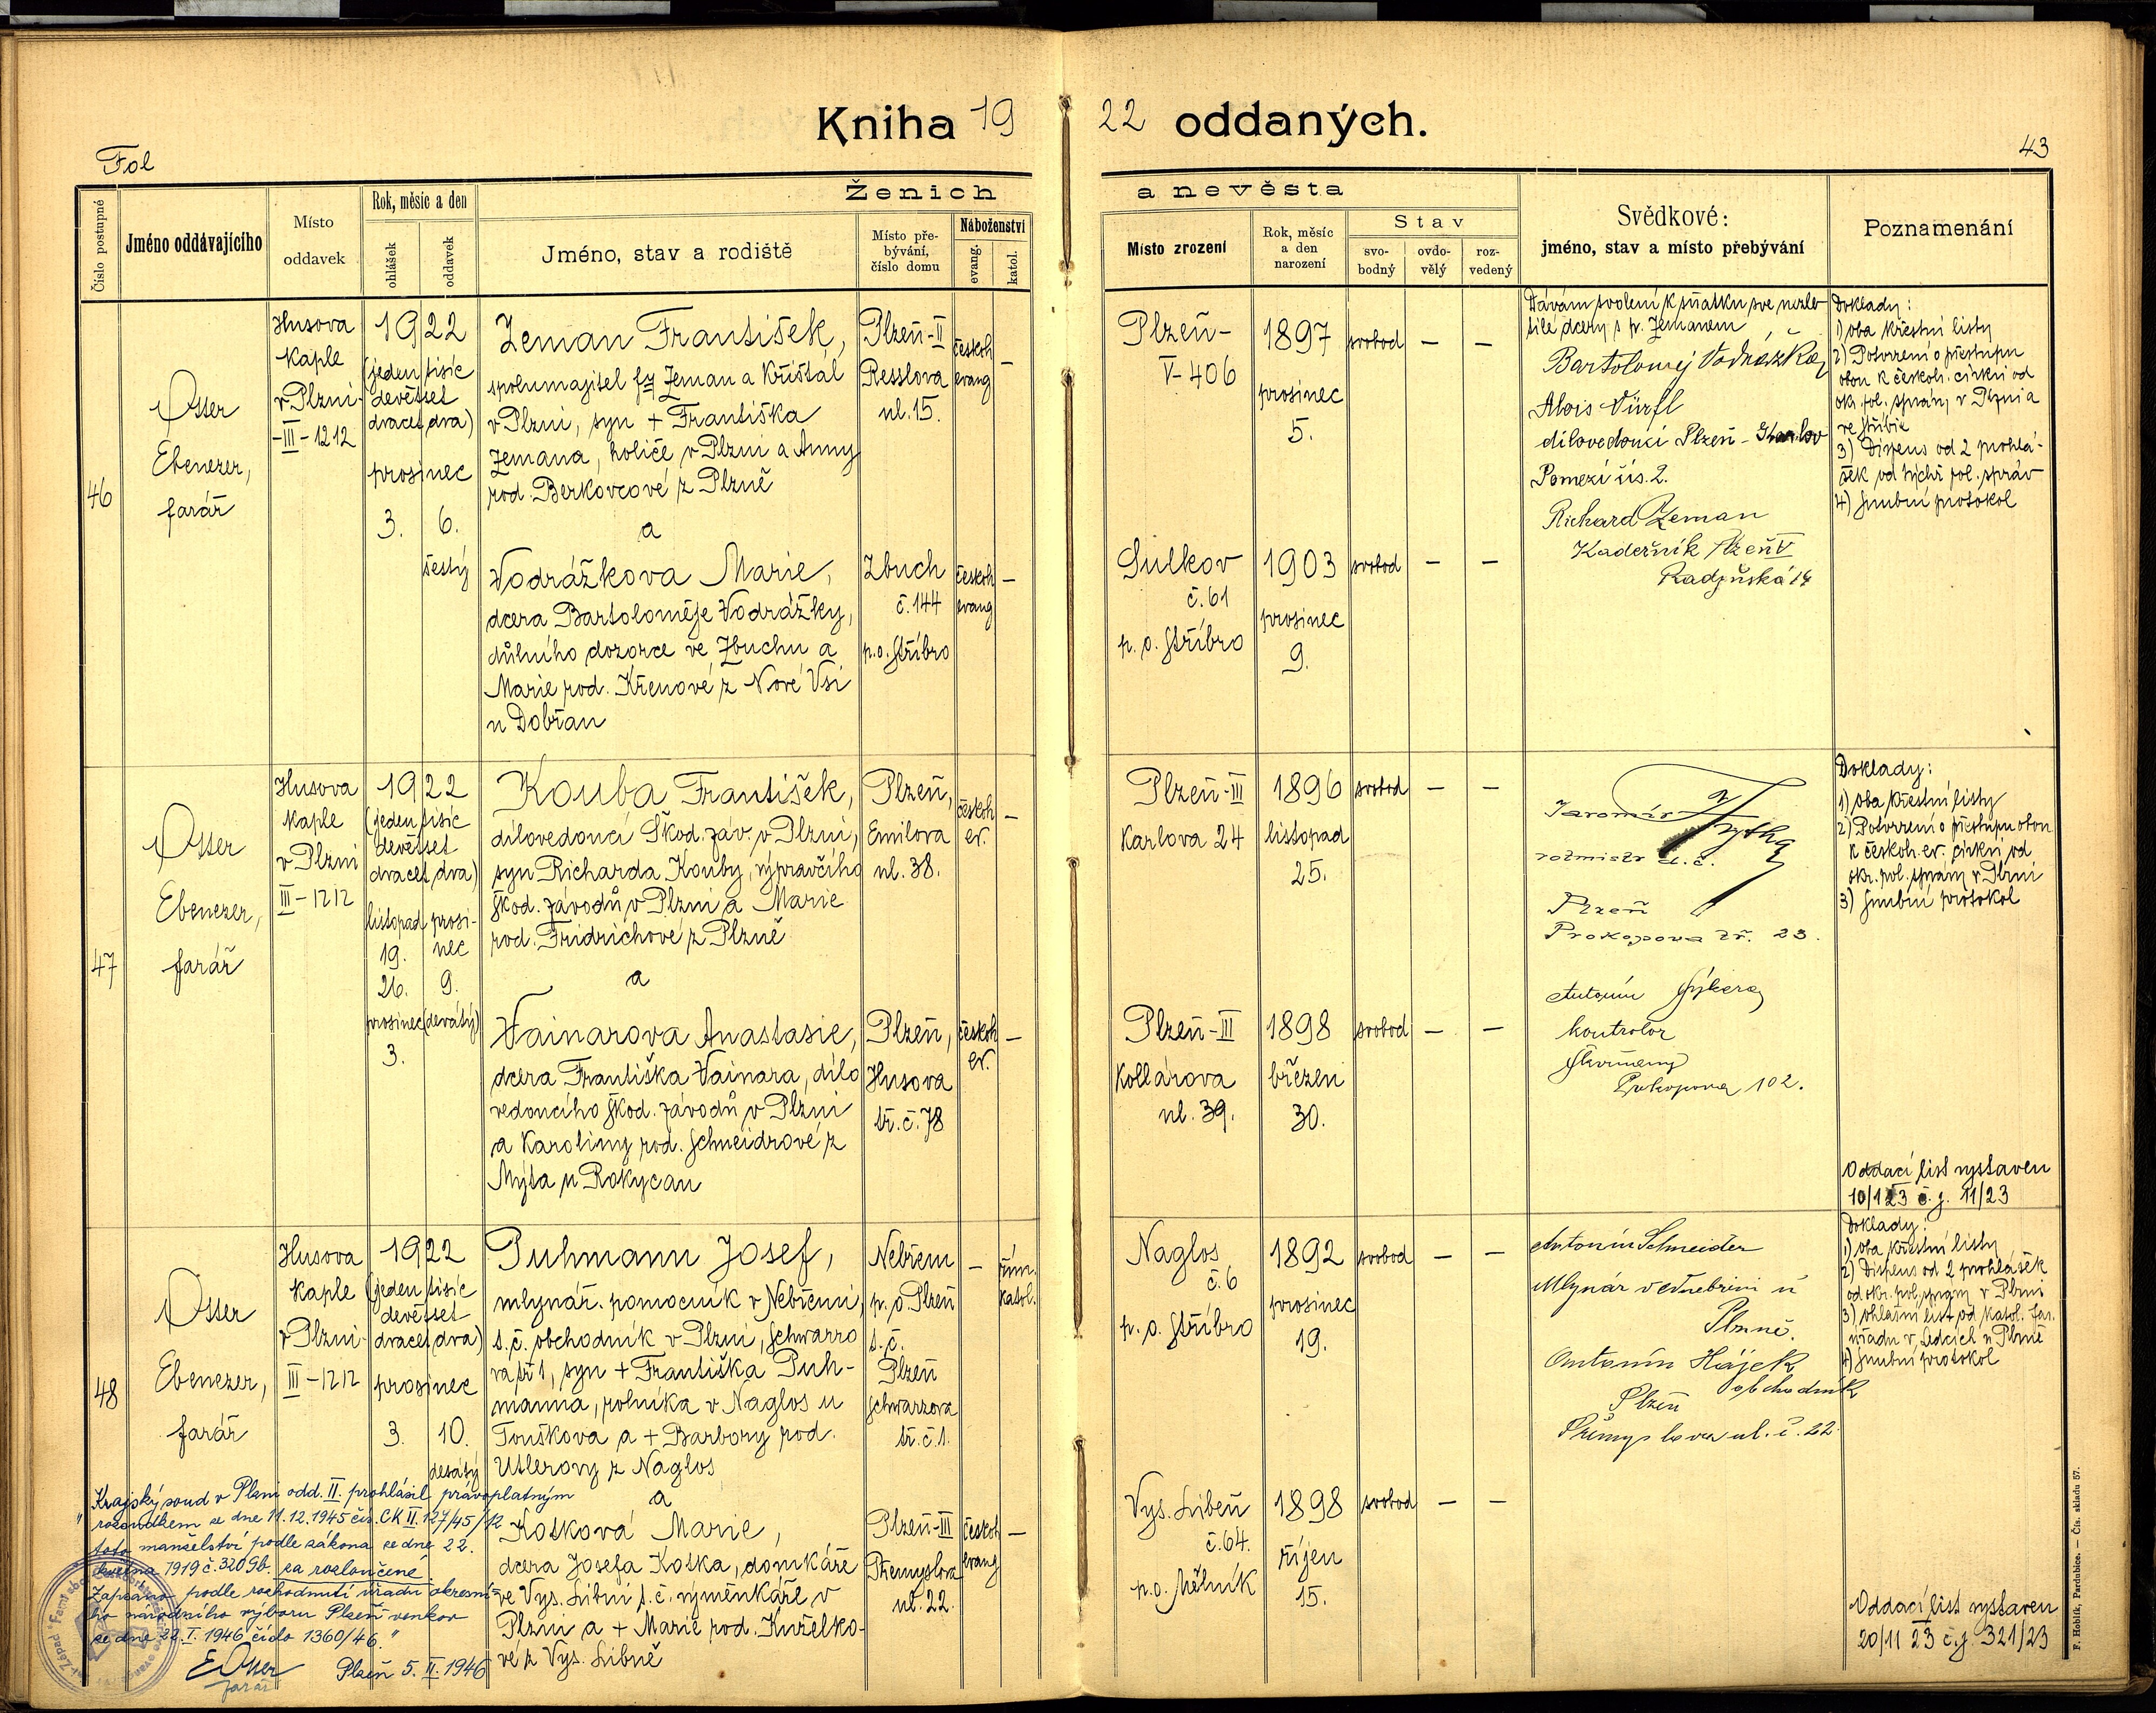 Kniha 19 22 oddaných.
Fol
43
Číslo postupné
Jméno oddávajícího
Místo
oddavek
Rok, měsíc a den
ohlášek
oddavek
Ženich
a nevěsta
Jméno, stav a rodiště
Místo pře-
bývání,
číslo domu
Náboženství
evang.
katol.
Místo zrození
Rok, měsíc
a den
narození
Stav
svo-
bodný
ovdo-
vělý
roz-
vedený
Svědkové:
jméno, stav a místo přebývání
Poznamenání
46
Opler
Ebenezer,
farář
Husova
kaple
v Plzni-
-III-1212
1922
(jeden tisíc
devětset
dvacet dva)
prosinec
3. 6.
šestý
Zeman František,
spolumajitel fy Zeman a Křišťál
v Plzni, syn + Františka
Zemana, holiče v Plzni a Anny
rod. Berkovcové z Plzně
a
Vodrážkova Marie,
dcera Bartoloměje Vodrážky,
důlního dozorce ve Zbuchu a
Marie rod. Křenové z Nové Vsi
u Dobřan
Plzeň-II
Resslova
ul. 15.
českoh
evang
—
Zbuch
č. 144
p. o. Stříbro
českoh
evang
—
Plzeň-
V-406
1897
prosinec
5.
svobod — —
Sulkov
č. 61
p. o. Stříbro
1903
prosinec
9.
svobod — —
Dávám svolení k sňatku své nezle-
tilé dcery s p. Zemanem
Bartolomej Vodrážka
Alois
dílovedoucí Plzeň-
Pomezí čís. 2.
Richard Zeman
Kadeřník Plzeň V
Radyňská 14
Doklady:
1) oba křestní listy
2) Potvrzení o přestupu
obou k českob. církvi od
okr. pol. správy v Plzni a
ve Stříbře
3) Dispens od 2 prohlá-
šek od týchž pol. správ
4) Snubní protokol
47
Ebenezer,
farář
Husova
kaple
v Plzni
III-1212
1922
(jeden tisíc
devětset
dvacet dva)
listopad prosi-
19. nec
26. 9.
prosinec (devátý)
3.
Kouba František,
dílovedoucí Škod. záv. v Plzni,
syn Richarda Kouby, výpravčího
Škod. závodů v Plzni a Marie
rod. Fridrichové z Plzně
a
Vainarova Anastasie,
dcera Františka Vainara, dílo
vedoucího Škod. závodů v Plzni
a Karoliny rod. Schneidrové z
Mýta u Rokycan
Plzeň,
Emilova
ul. 38.
českoh
ev.
—
Plzeň,
Husova
tř. č. 78
českoh
ev.
—
Plzeň-III
Karlova 24
1896
listopad
25.
svobod — —
Plzeň-III
Kollárova
ul. 39.
1898
březen
30.
svobod — —
Jaromír
rotmistr
Plzeň
Prokopova tř. 23.
Antonín Sýkora
kontrolor
Prokopova 102.
Doklady:
1) oba křestní listy
2) Potvrzení o přestupu obou
k českob. ev. církvi od
okr. pol. správy v Plzni
3) Snubní protokol
Oddací list vystaven
10/1 23 č. j. 11/23
48
Ebenezer,
farář
Husova
kaple
v Plzni-
III-1212
1922
(jeden tisíc
devětset
dvacet dva)
prosinec
3. 10.
desátý
Puhmann Josef,
mlynář. pomocník v Nebřemi,
t. č. obchodník v Plzni, Schwarzo
va tř 1, syn + Františka Puh-
manna, rolníka v Naglos u
Touškova a + Barbory rod.
Utlerovy z Naglos
a
Kotková Marie,
dcera Josefa Kotka, domkáře
ve Vys. Libni t. č. výměnkáře v
Plzni a + Marie rod. Kuželko-
vé z Vys. Libně
Nebřem
p. o. Plzeň
t. č.
Plzeň
Schwarzova
tř. č. 1.
—
řím.
katol.
Plzeň-III
Přemyslova
ul. 22.
českoh
evang
—
Naglos
č. 6
p. o. Stříbro
1892
prosinec
19.
svobod — —
Vys. Libeň
č. 64.
p. o. Mělník
1898
říjen
15.
svobod — —
Antonín Schneider
Mlynář v Nebřini u
Plzně.
Antonín Hájek
obchodník
Plzeň
Přemyslova ul. č. 22.
Doklady:
1) oba křestní listy
2) Dispens od 2 prohlášek
od okr. pol. správy v Plzni
3) ohlašní list od katol. far.
úřadu v Ledcích u Plzně
4) Snubní protokol
Oddací list vystaven
20/11 23 č. j. 321/23
Krajský soud v Plzni odd. II. prohlásil pravoplatným
rozsudkem ze dne 11.12.1945 čís. CK II. 127/45/12
toto manželství podle zákona ze dne 22.
května 1919 č. 320 Sb. za rozloučené.
Zapsáno podle rozhodnutí úřadu okresní-
ho národního výboru Plzeň venkov
ze dne 22.I.1946 číslo 1360/46."
farář
Plzeň 5. II. 1946
F. Hoblík, Pardubice. — Čís. skladu 57.